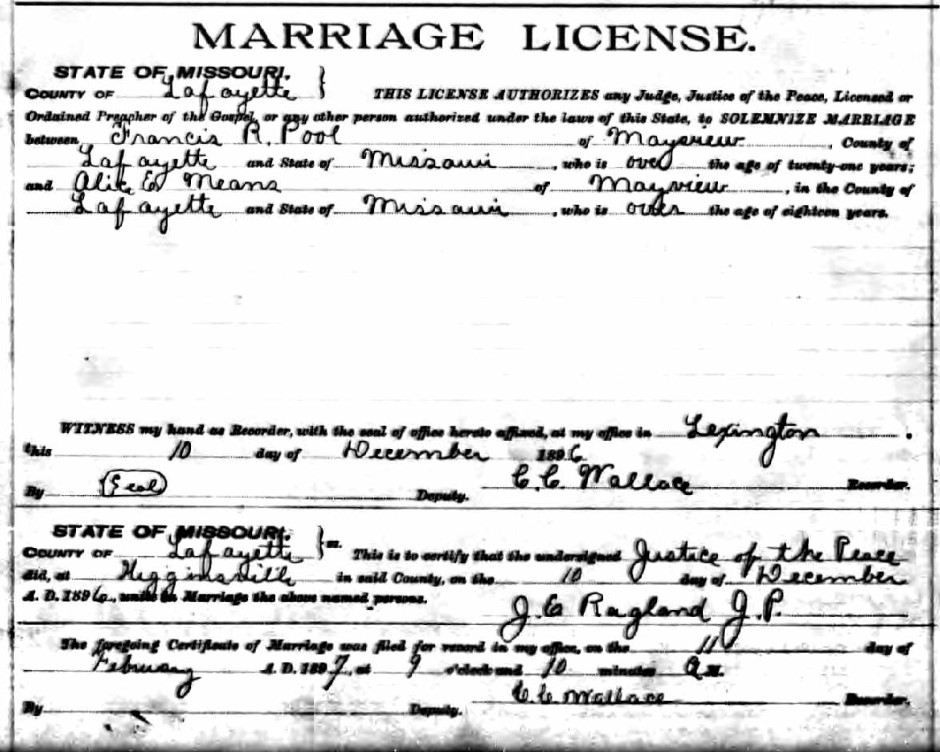 MARRIAGE LICENSE.
STATE OF MISSOURI. }
COUNTY OF Lafayette } THIS LICENSE AUTHORIZES any Judge, Justice of the Peace, Licensed or
Ordained Preacher of the Gospel, or any other person authorized under the laws of this State, to SOLEMNIZE MARRIAGE
between Francis R. Pool of Mayview, County of
Lafayette and State of Missouri, who is over the age of twenty-one years;
and E. Means of Mayview, in the County of
Lafayette and State of Missouri, who is over the age of eighteen years.
WITNESS my hand as Recorder, with the seal of office hereto affixed, at my office in Lexington.
this 10 day of December 1896
By (Seal) Deputy. C. C. Wallace Recorder.
STATE OF MISSOURI. }
COUNTY OF Lafayette } ss. This is to certify that the undersigned Justice of the Peace
did, at Higginsville in said County, on the 10 day of December
A. D. 1896, unite in Marriage the above named persons.
Ragland J.P.
The foregoing Certificate of Marriage was filed for record in my office, on the 11 day of
February A. D. 1897, at 9 o'clock and 10 minutes A. M.
C. C. Wallace Recorder.
By Deputy.